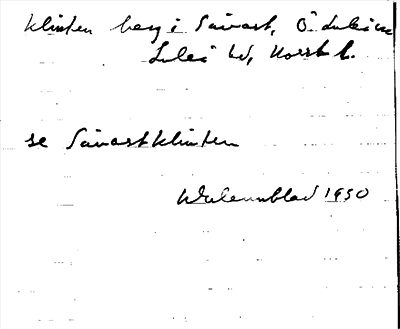 Klinten berg i Sävast, Ö. Luleå sn
Luleå ld, Norrb. l.
se Sävastklinten
Wälennblad 1950